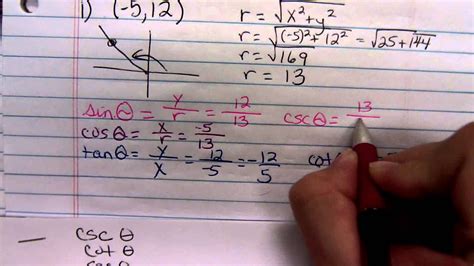 1) (-5,12)
r = √x²+y²
r = √(-5)²+12² = √25+144
r = √169
r = 13
sinθ = y/r = 12/13 cscθ = 13/
cosθ = x/r = -5/13
tanθ = y/x = 12/-5 = -12/5 cot
csc θ
cot θ